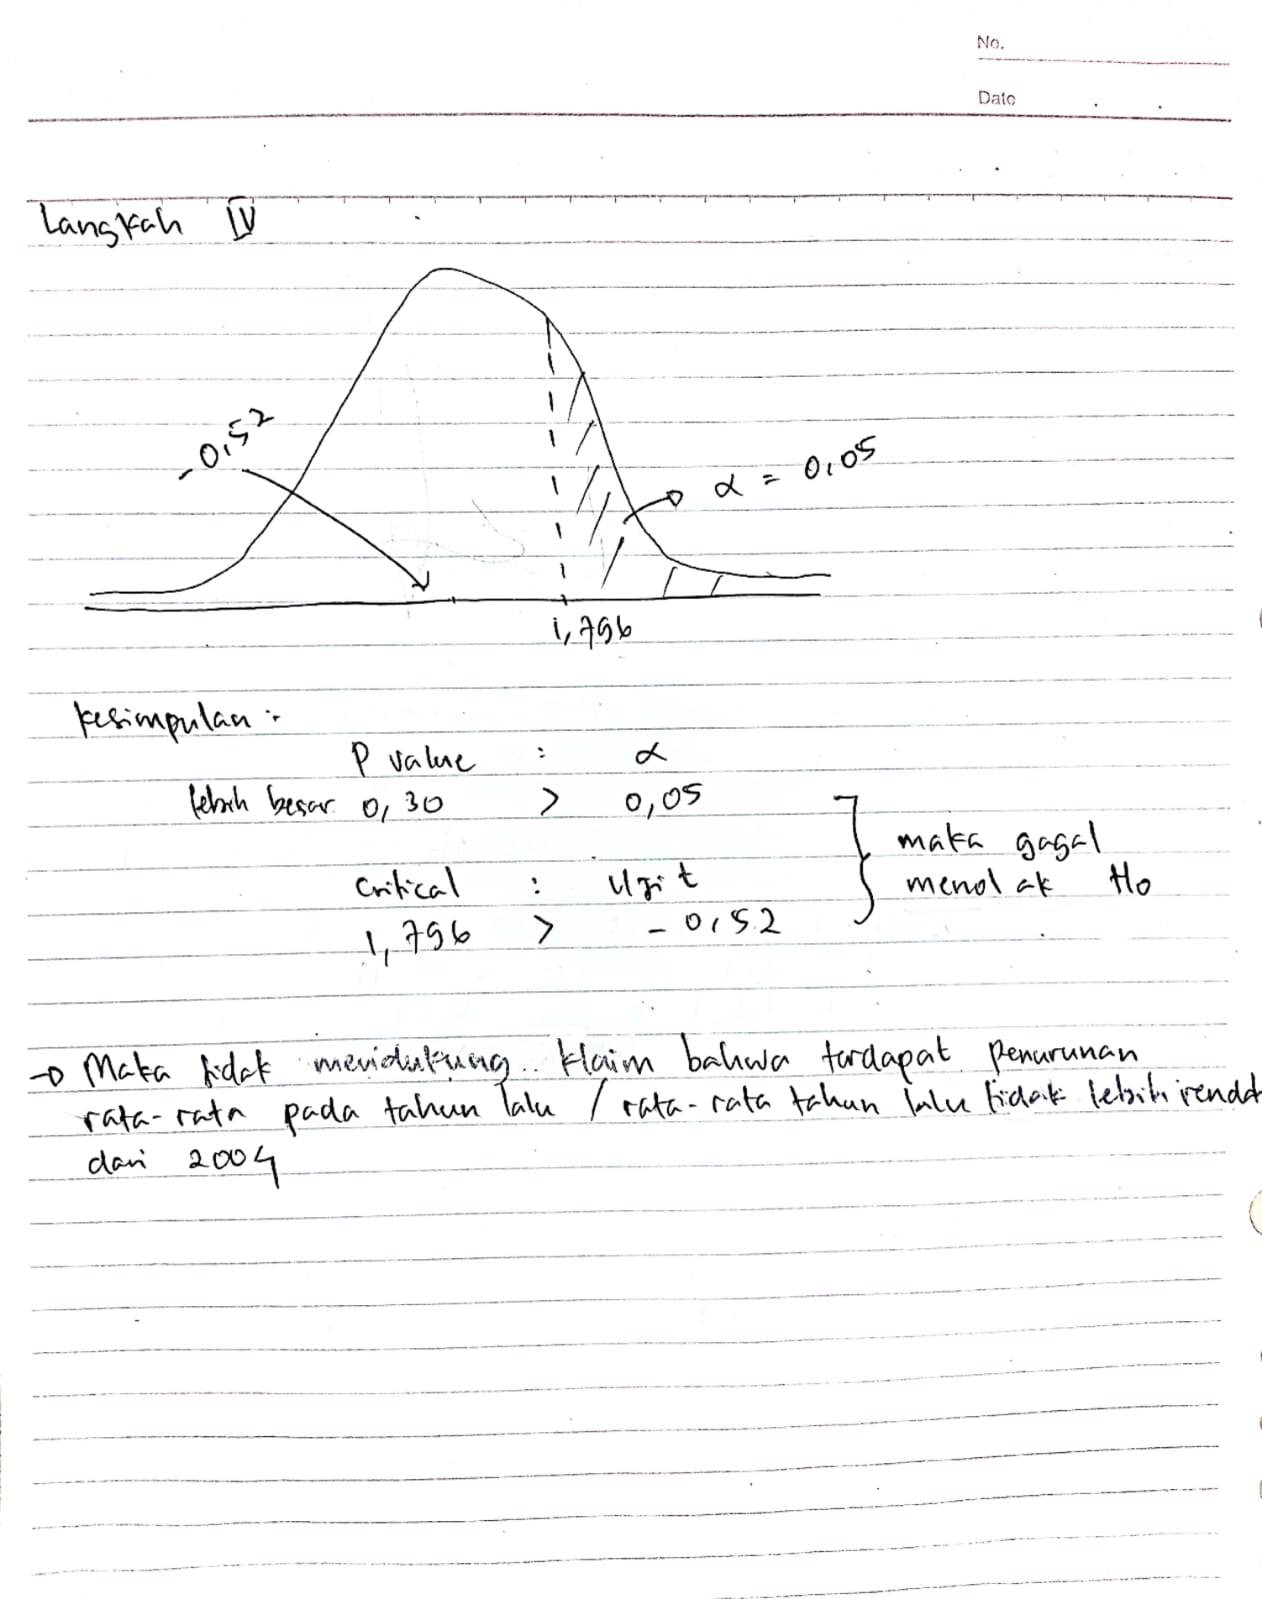 No.
Date
Langkah IV
-0,52
α = 0,05
1,796
Kesimpulan :
P value : α
lebih besar 0,30 > 0,05
maka gagal
menolak Ho
Critical : Uji t
1,796 > -0,52
→ Maka tidak mendukung klaim bahwa terdapat penurunan
rata-rata pada tahun lalu / rata-rata tahun lalu tidak lebih rendah
dari 2004